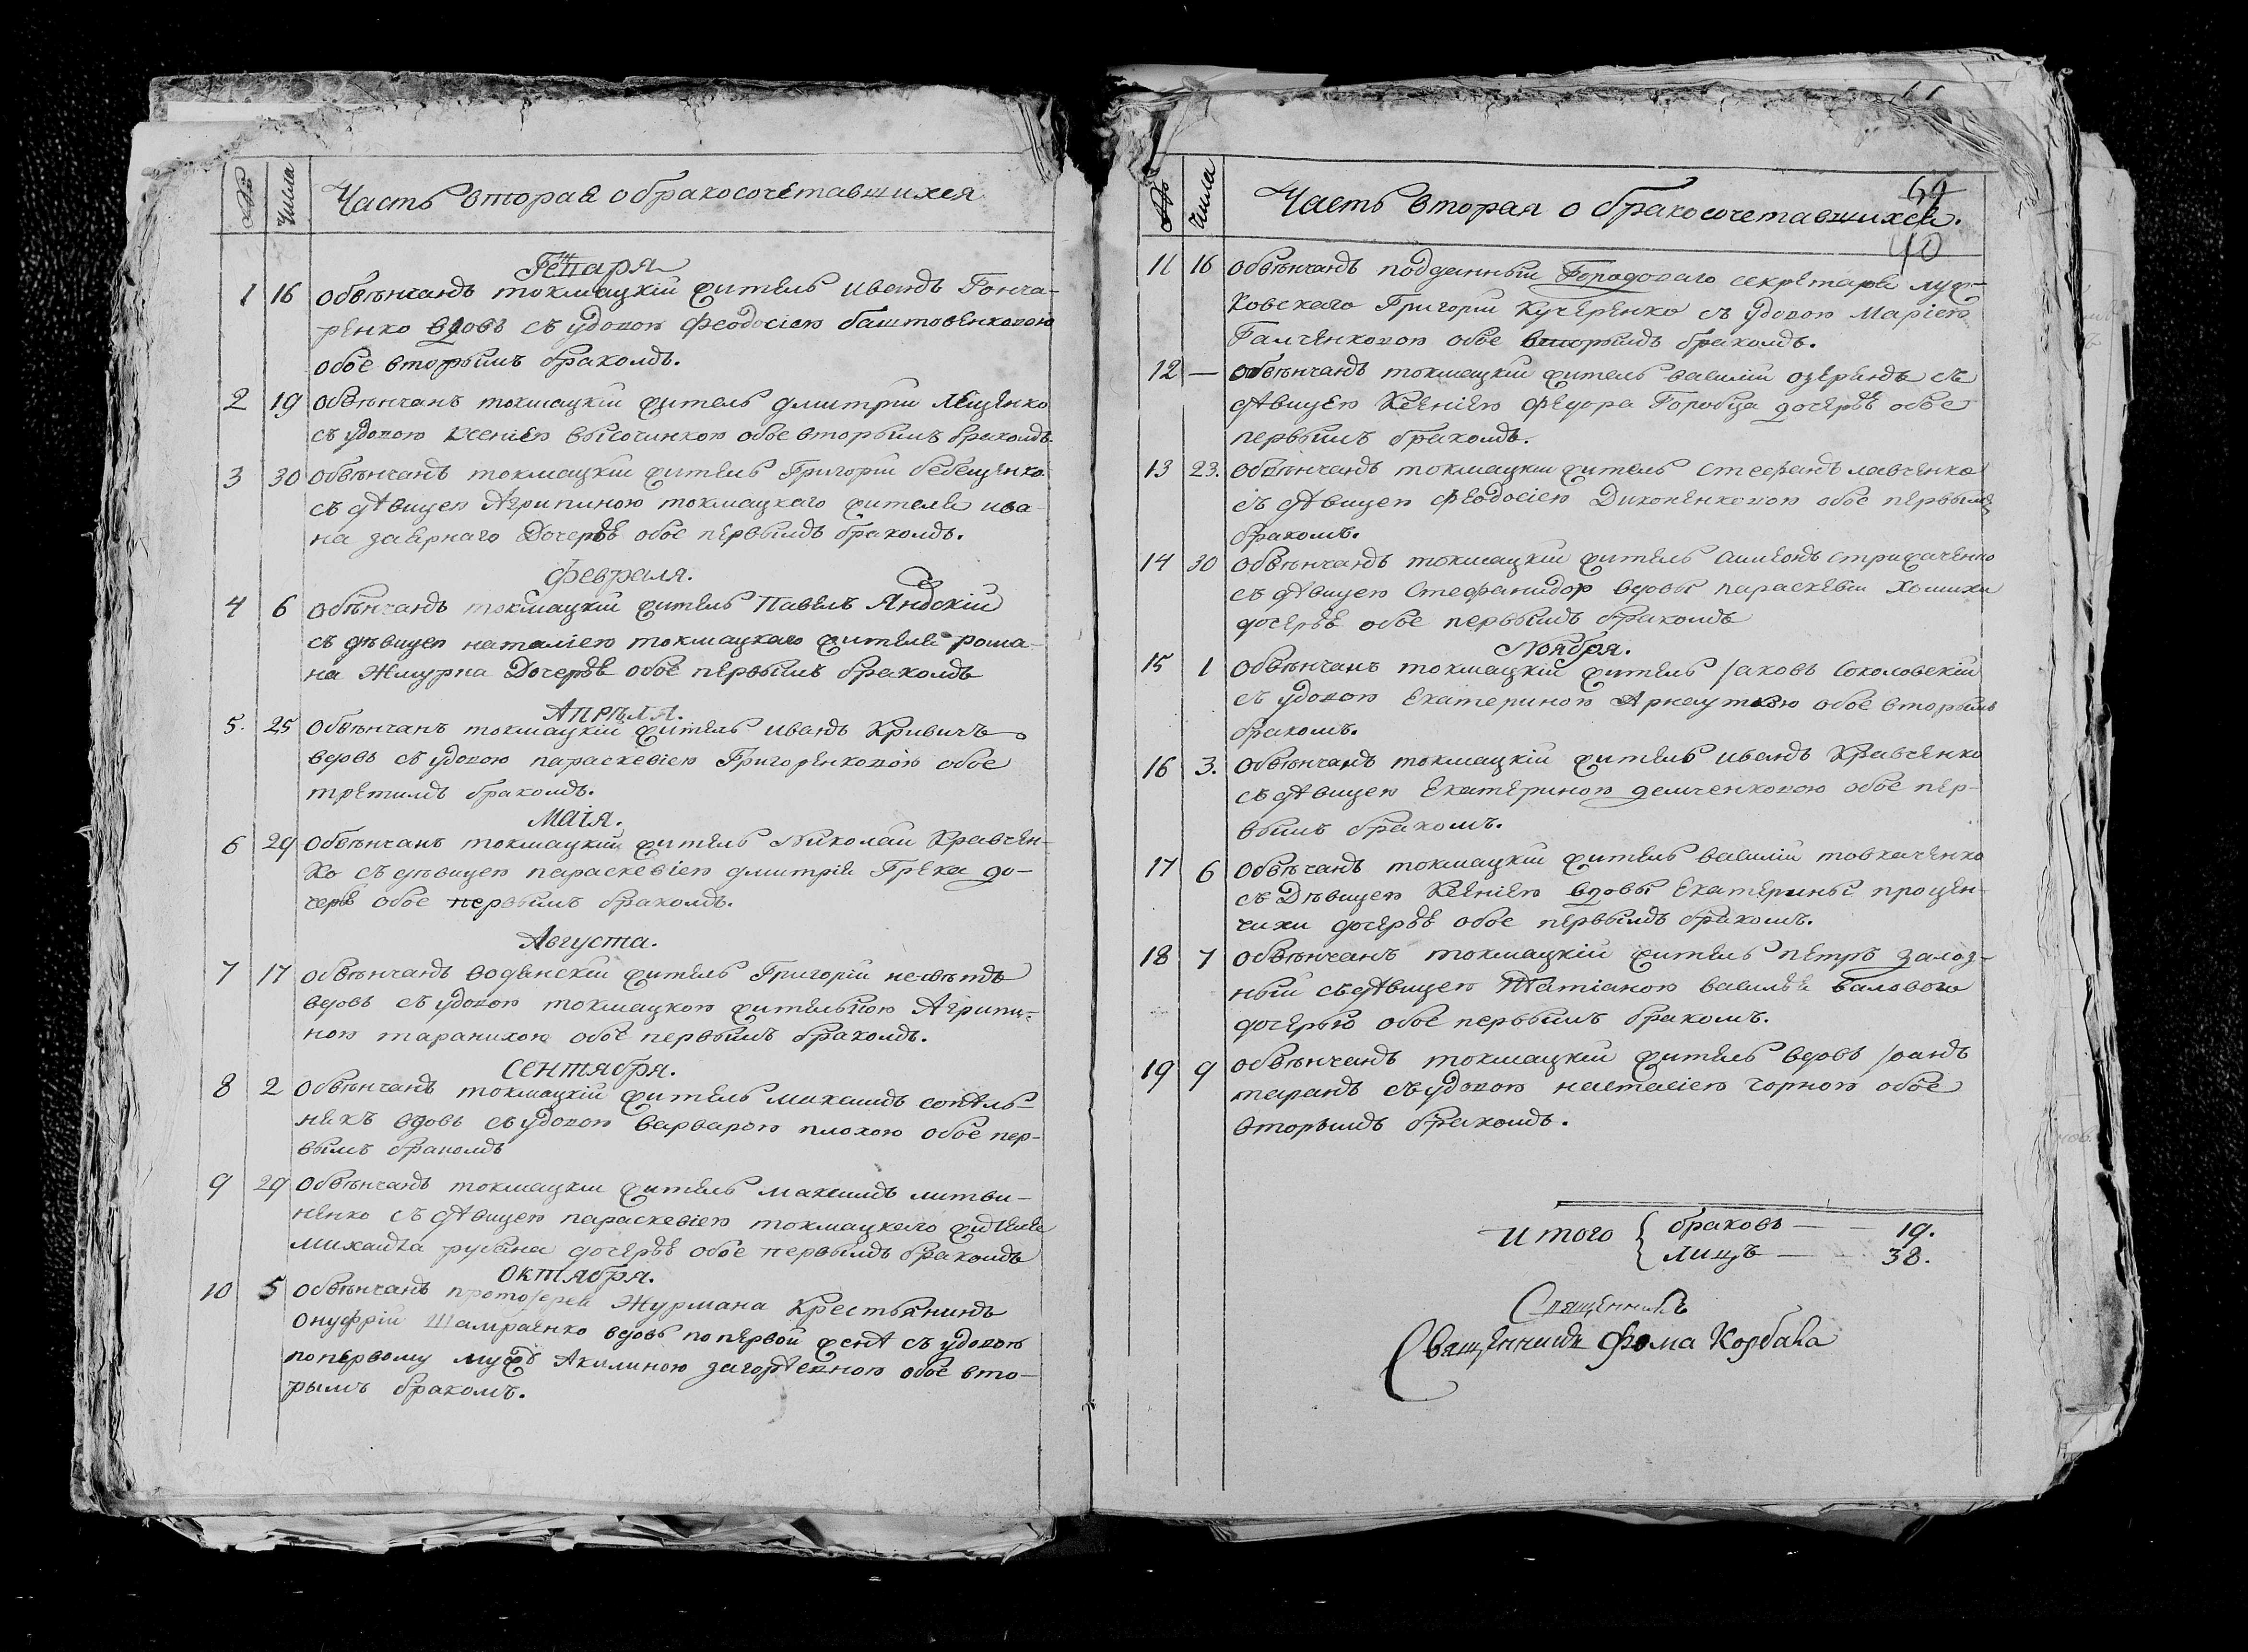 № Числа Часть вторая о бракосочетавшихся
Генваря
1 16 Обвѣнчанъ токмацкій житель иванъ Гонча-
ренко вдовъ съ удовою Феодосіею баштовенковою
обое вторымъ бракомъ.
2 19 Обвѣнчанъ токмацкій житель дмитрій Лещенко
съ удовою Ксеніею высочинкою обое вторымъ бракомъ.
3 30 Обвѣнчанъ токмацкій житель Григорій бебещенко
съ дѣвицею Агрипиною токмацкаго жителя ива-
на заернаго Дочерѣю обое первымъ бракомъ.
Февраля.
4 6 Обвѣнчанъ токмацкій житель Павелъ Яновскій
съ дѣвицею наталіею токмацкаго жителя рома-
на Жмурка Дочерѣю обое первымъ бракомъ
Апрѣля.
5. 25 Обвѣнчанъ токмацкій житель иванъ Кривичъ
вдовъ съ удовою параскевіею Григоренковою обое
третимъ бракомъ.
Маія.
6 29 Обвѣнчанъ токмацкій житель Николай Кравчен-
ко съ дѣвицею параскевіею дмитрія Грека до-
черѣю обое первымъ бракомъ.
Августа.
7 17 Обвѣнчанъ водянскій житель Григорій
вдовъ съ удовою токмацкою жителькою Агрипи-
ною таранихою обое первымъ бракомъ.
Сентября.
8 2 Обвѣнчанъ токмацкій житель михаилъ сопѣль-
никъ вдовъ съ удовою варварою плохою обое пер-
вымъ бракомъ
9 29 Обвѣнчанъ токмацкій житель максимъ литви-
ненко съ дѣвицею параскевіею токмацкаго жителя
михаила дочерѣю обое первымъ бракомъ
Октября.
10 5 Обвѣнчанъ протоіерея Журмана Крестьянинъ
Онуфрій Шамраенко вдовъ по первой женѣ съ удовою
по первому мужѣ Акилиною обое вто-
рымъ бракомъ.
64
40
№ Числа Часть вторая о бракосочетавшихся.
11 16 Обвѣнчанъ подданный Городоваго секретаря луж-
ковскаго Григорій Кучеренко съ удовою Маріею
Галченковою обое вторымъ бракомъ.
12 — Обвѣнчанъ токмацкій житель василій озерянъ съ
дѣвицею Ксеніею Федора Горобца дочерѣю обое
первымъ бракомъ.
13 23. Обвѣнчанъ токмацкій житель стефанъ лавченко
съ дѣвицею Феодосіею Диконенковою обое первымъ
бракомъ.
14 30 Обвѣнчанъ токмацкій житель симеонъ стрижаченко
съ дѣвицею Стефанидою вдовы параскевіи Хомихи
дочерѣю обое первымъ бракомъ
Ноября.
15 1 Обвѣнчанъ токмацкій житель Іаковъ Соколовскій
съ удовою Екатериною Арнауткою обое вторымъ
бракомъ.
16 3. Обвѣнчанъ токмацкій житель иванъ Кравченко
съ дѣвицею Екатериною демченковою обое пер-
вымъ бракомъ.
17 6 Обвѣчанъ токмацкій житель василій товкаченко
съ Дѣвицею Ксеніею вдовы Екатерины процен-
чихи дочерѣю обое первымъ бракомъ.
18 7 Обвѣнчанъ токмацкій житель петръ залоз-
ный съ дѣвицею Татіаною василія Баловаго
дочерью обое первымъ бракомъ.
19 9 Обвѣнчанъ токмацкій житель вдовъ Іоанъ
таранъ съ удовою настасіею чорною обое
вторымъ бракомъ.
Итого { браковъ — — 19.
лицъ — — 38.
Священникъ
Священникъ Фома Корбака